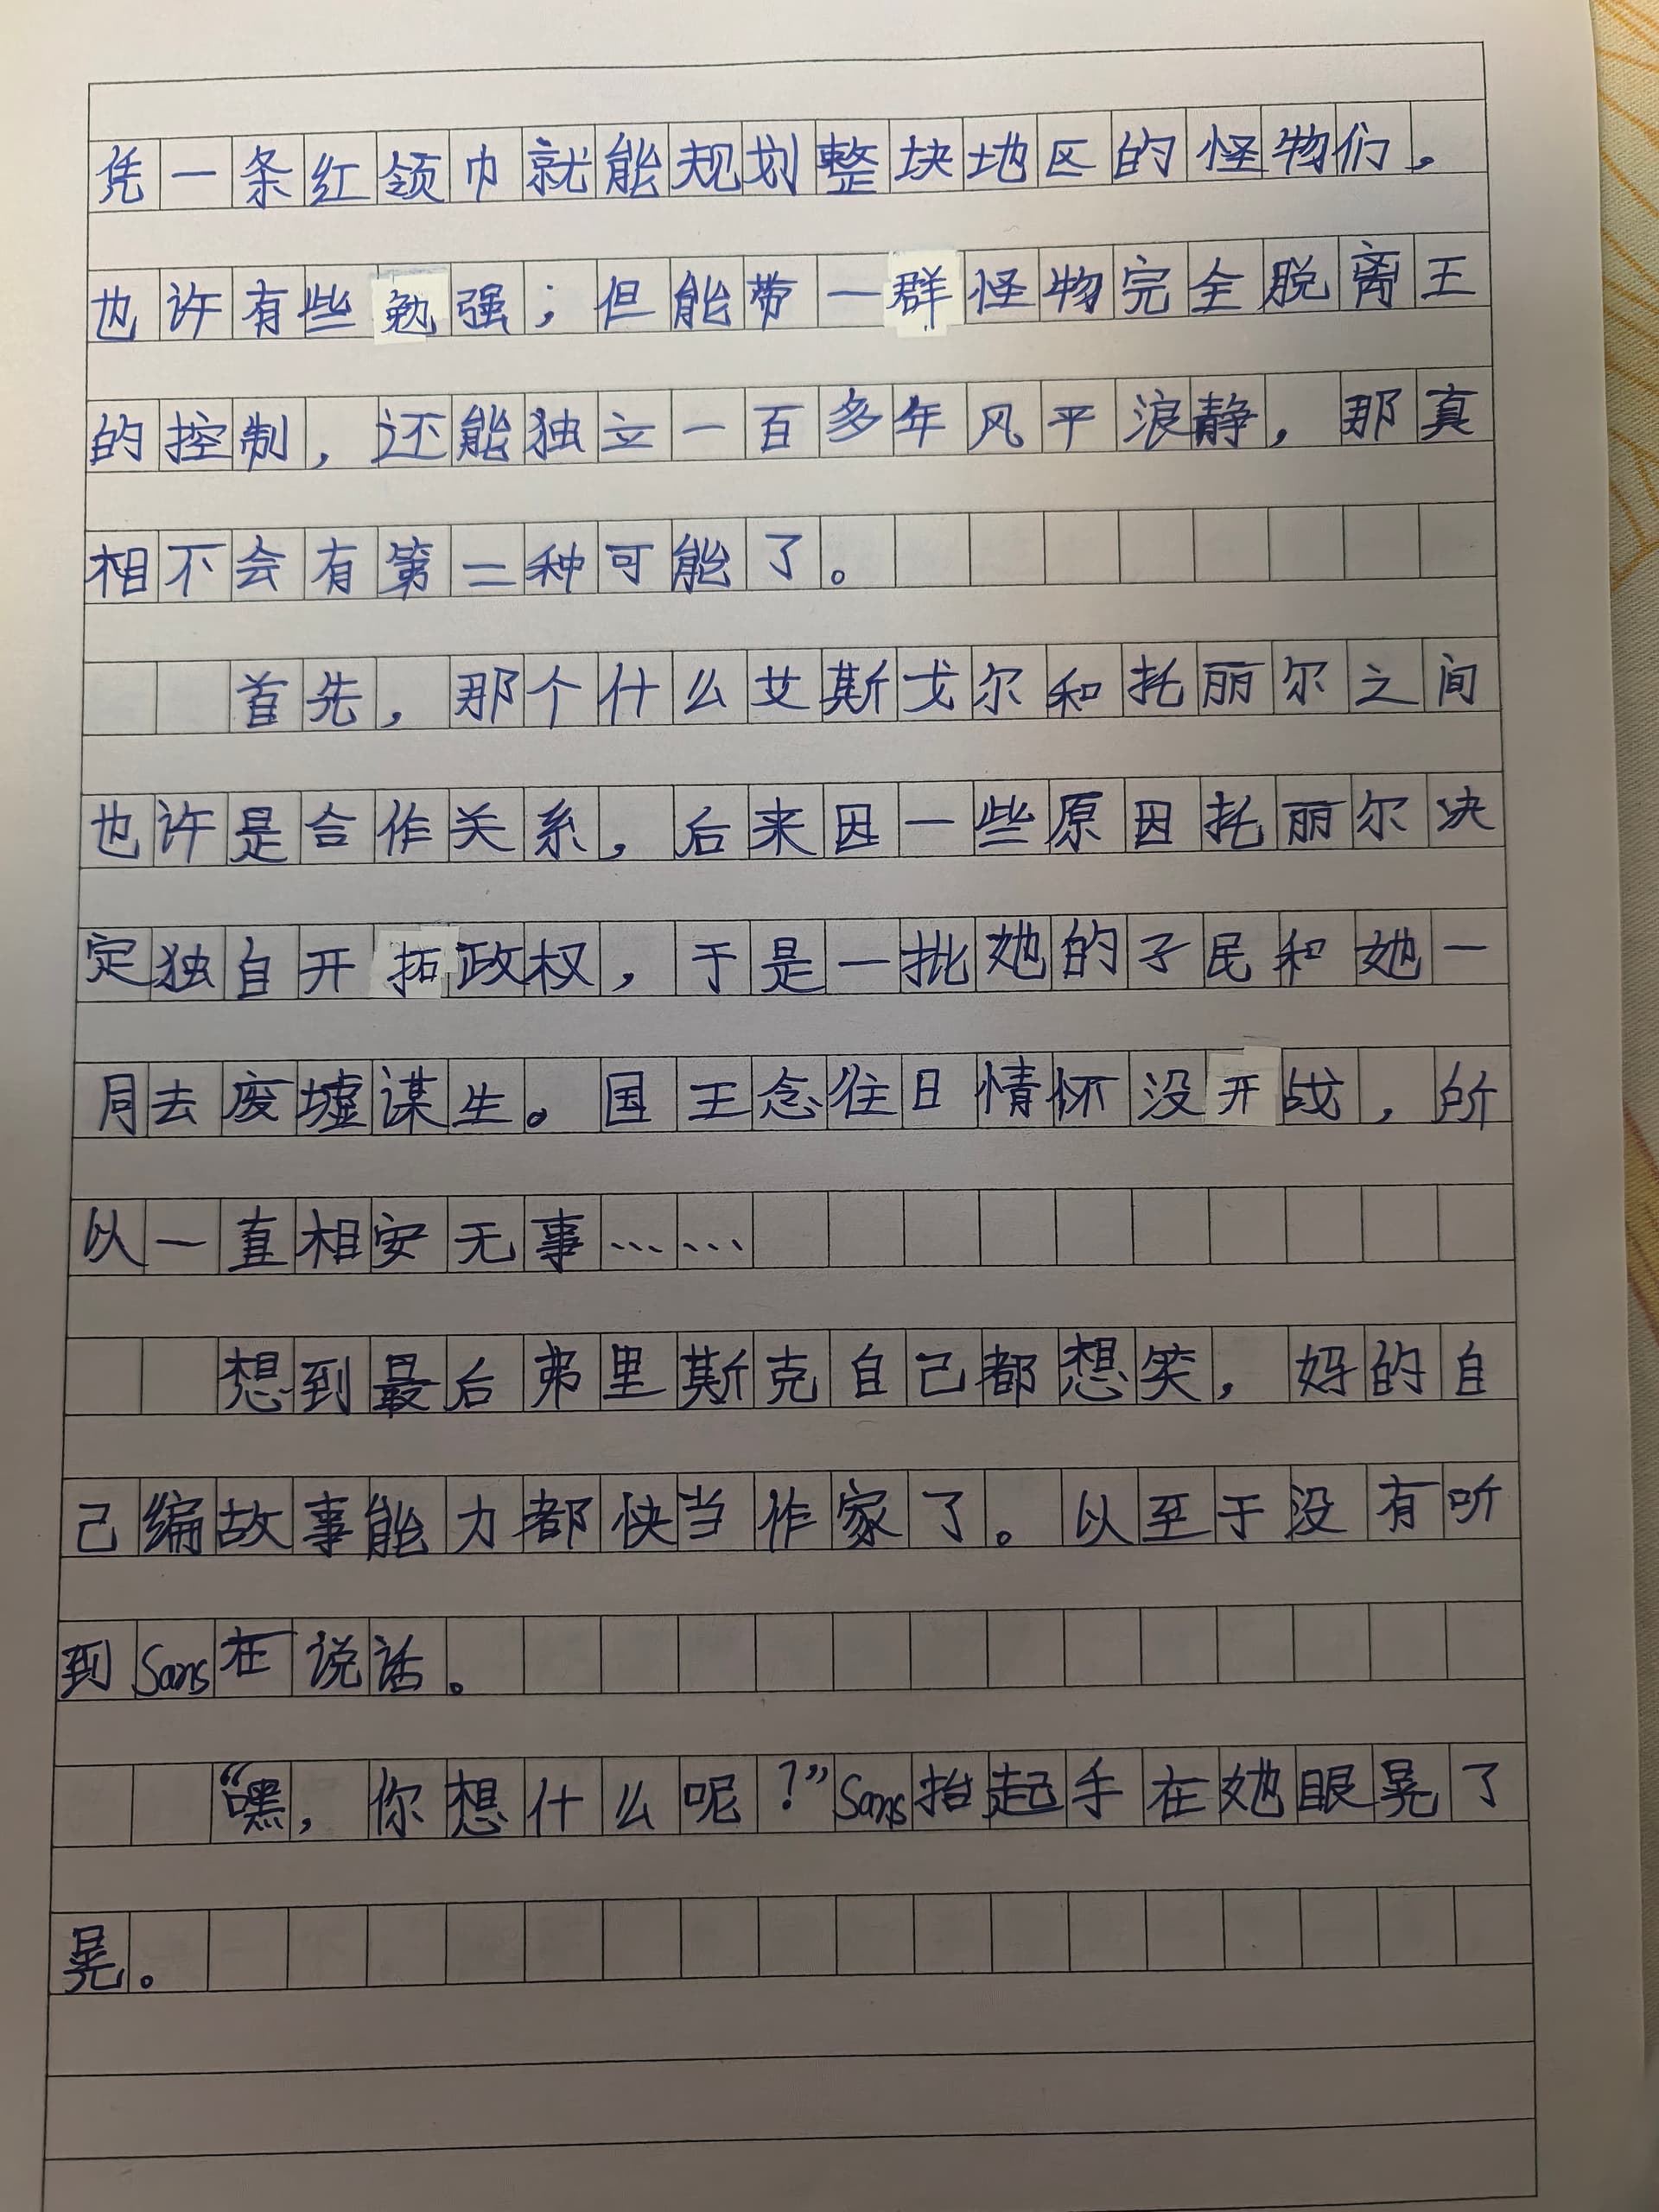 凭一条红领巾就能规划整块地区的怪物们。
也许有些勉强；但能带一群怪物完全脱离王
的控制，还能独立一百多年风平浪静，那真
相不会有第二种可能了。
首先，那个什么艾斯戈尔和托丽尔之间
也许是合作关系，后来因一些原因托丽尔决
定独自开拓政权，于是一批她的子民和她一
同去废墟谋生。国王念往日情怀没开战，所
以一直相安无事……
想到最后弗里斯克自己都想笑，妈的自
己编故事能力都快当作家了。以至于没有听
到Sans在说话。
“嘿，你想什么呢？”Sans抬起手在她眼晃了
晃。